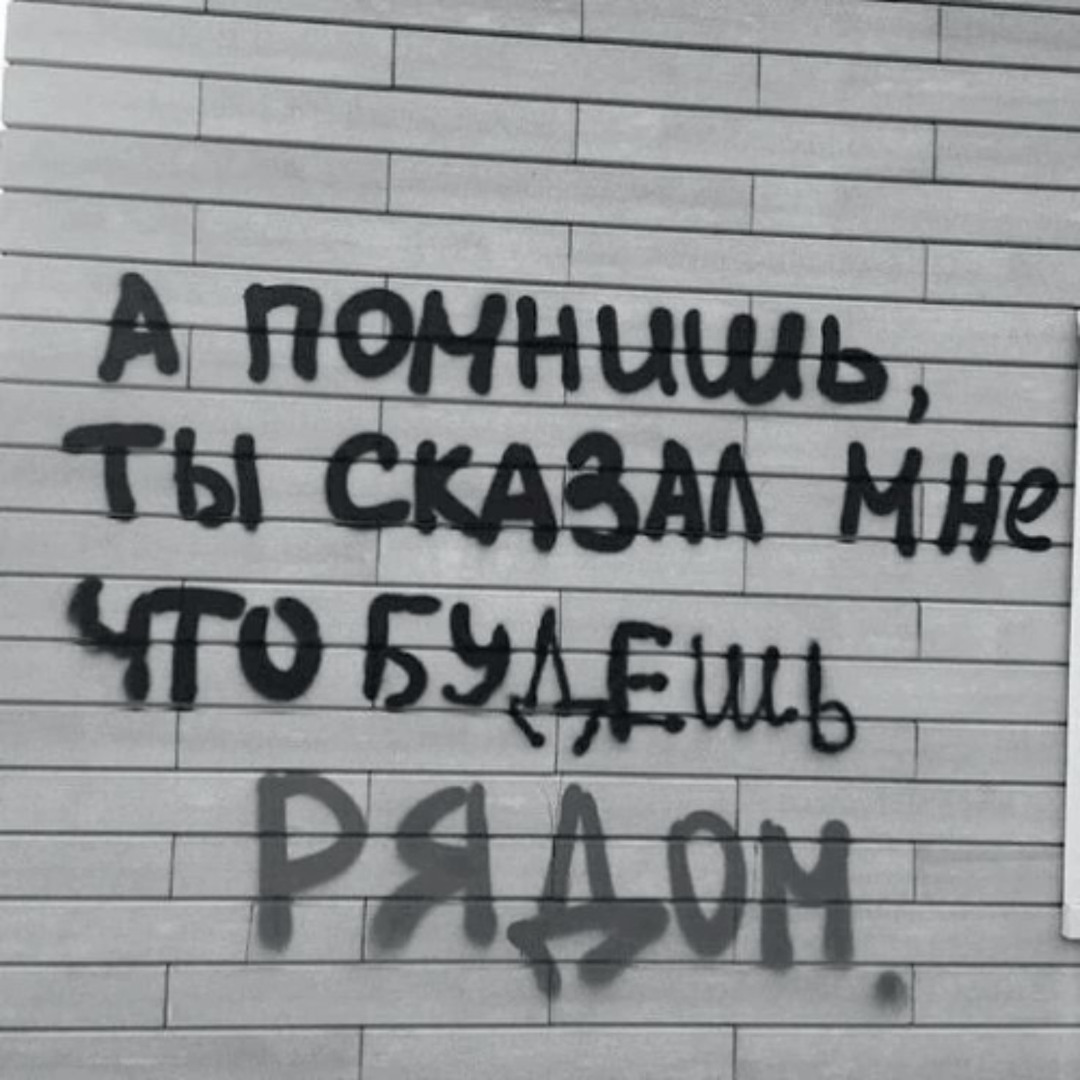 А ПОМНИШЬ,
ТЫ СКАЗАЛ МНе
ЧТО БУДЕШЬ
РЯДОМ.